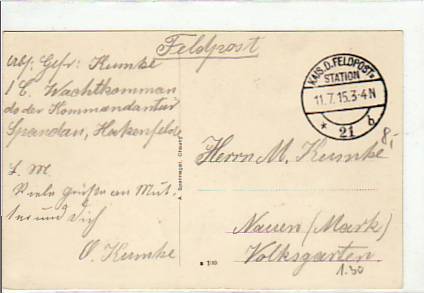 Feldpost
Abs: Gefr: Kumke
1 C. Wachtkomman
do der Kommandantur
Spandau, Hakenfelde
L. M.
Viele Grüße an Mut-
ter und Dich
O. Kumke
KAIS. D. FELDPOST
STATION
11.7.15. 3-4 N
* 21 b
8,-
Herrn M. Kumke
Nauen (Mark)
Volksgarten.
1.50